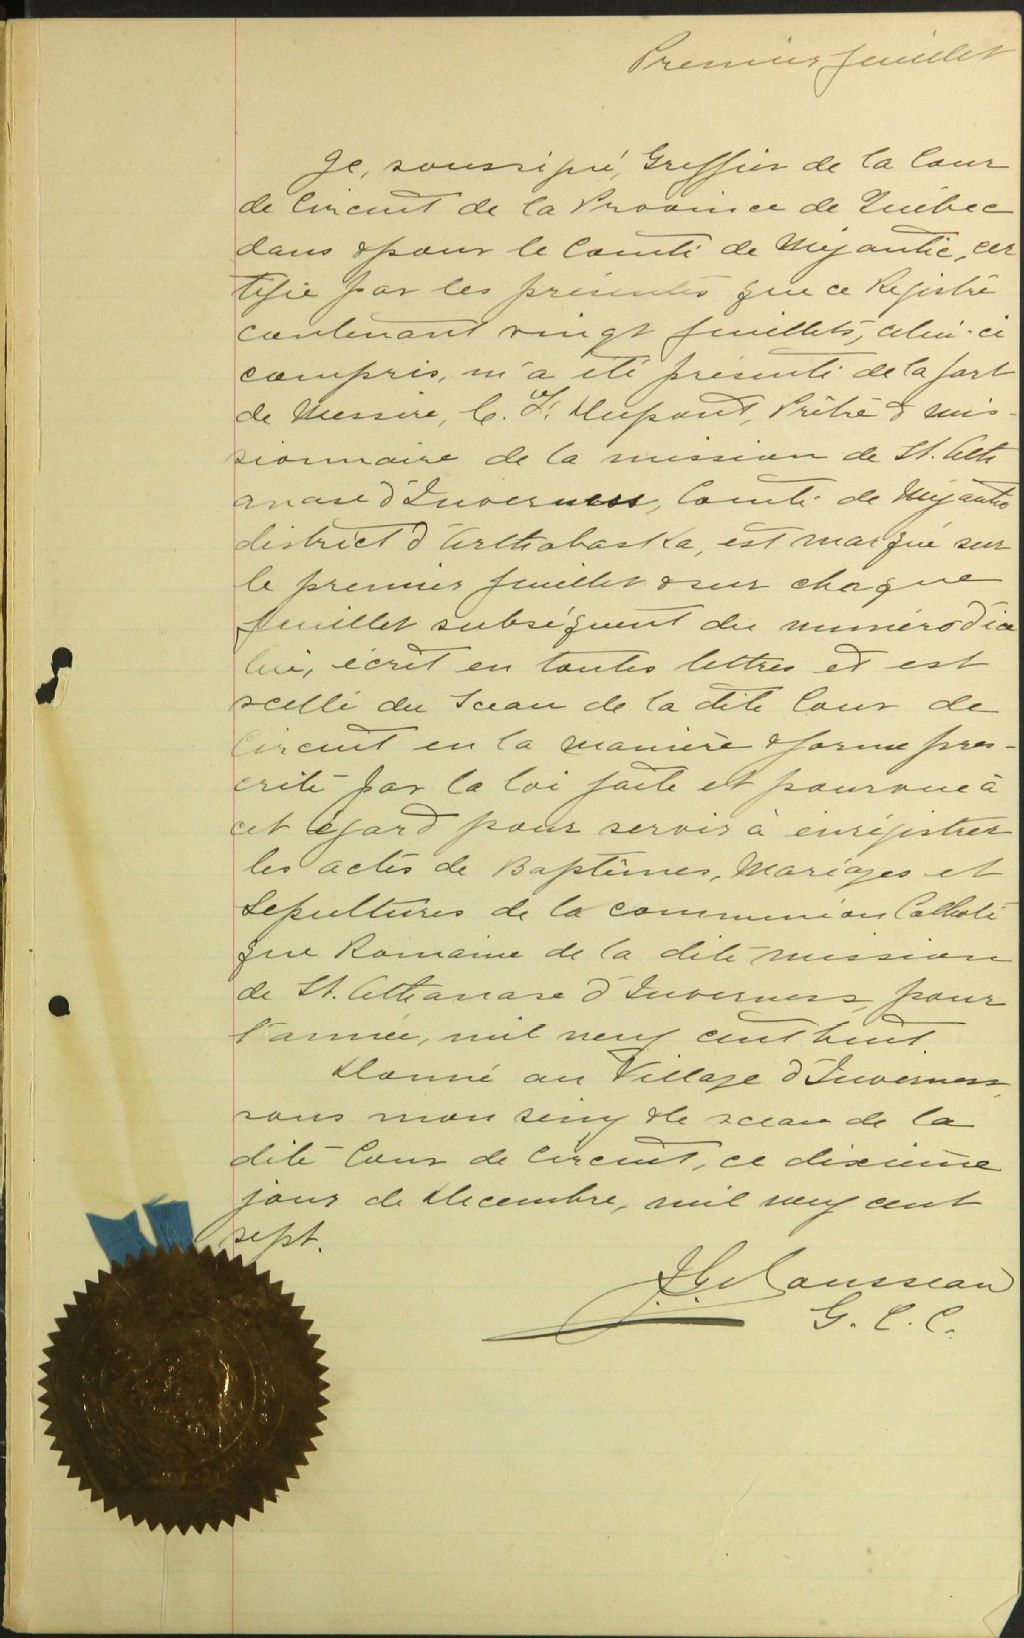 Premier feuillet
Je, soussigné, Greffier de la Cour
de Circuit de la Province de Québec
dans & pour le Comté de Mégantic, cer
tifie par les présentes que ce Registre
contenant vingt feuillets, celui-ci
compris, m'a été présenté de la part
de Messire, C. Z. Dupont, Prêtre & mis-
sionnaire de la mission de St. Atha
anase d'Inverness, Comté de Mégantic
district d'Arthabaska, est marqué sur
le premier feuillet & sur chaque
feuillet subséquent du numéro d'ice
lui, écrit en toutes lettres et est
scellé du Sceau de la dite Cour de
Circuit en la manière & forme pres-
crite par la loi faite et pourvue à
cet égard pour servir à enrégistrer
les actes de Baptêmes, Mariages et
Sépultures de la communion Catholi
que Romaine de la dite mission
de St. Athanase d'Inverness, pour
l'année, mil neuf cent huit.
Donné au Village d'Inverness,
sous mon seing & le sceau de la
dite Cour de Circuit, ce dixième
jour de Décembre, mil neuf cent
sept.
Rousseau
G. C. C.